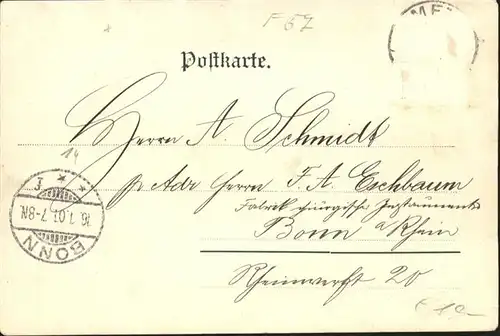 F 67
ME
Postkarte.
Herrn A. Schmidt
14
p. Adr Herrn F. A. Eschbaum
Fabrik chirurgischer Instrumente
Bonn a/Rhein
Rheinwerft 20
BONN
16.1.01.7-8N.